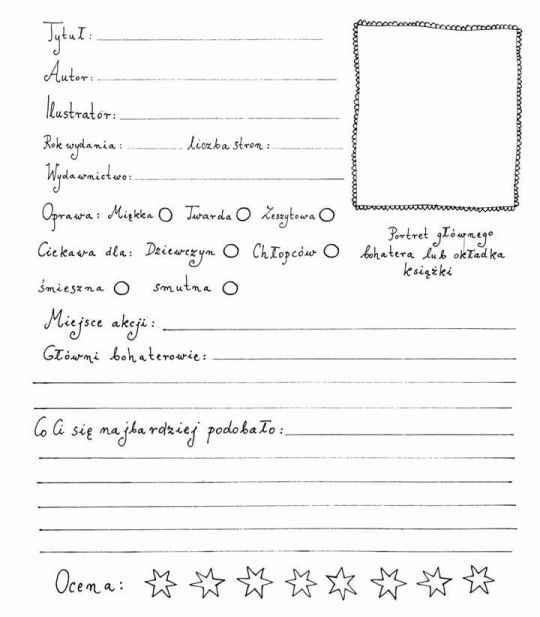 Tytuł:
Autor:
Ilustrator:
Rok wydania: liczba stron:
Wydawnictwo:
Oprawa: Miękka Twarda Zeszytowa
Ciekawa dla: Dziewczyn Chłopców
śmieszna smutna
Portret głównego
bohatera lub okładka
książki
Miejsce akcji:
Główni bohaterowie:
Co Ci się najbardziej podobało:
Ocena: